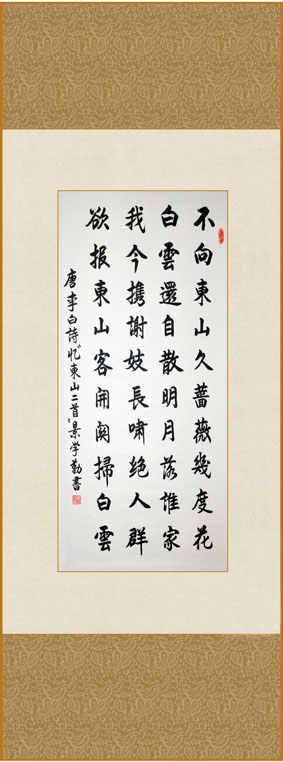 不向東山久薔薇幾度花
白雲還自散明月落誰家
我今攜謝妓長嘯绝人群
欲报東山客開関掃白雲
唐李白詩忆東山二首景学勤書